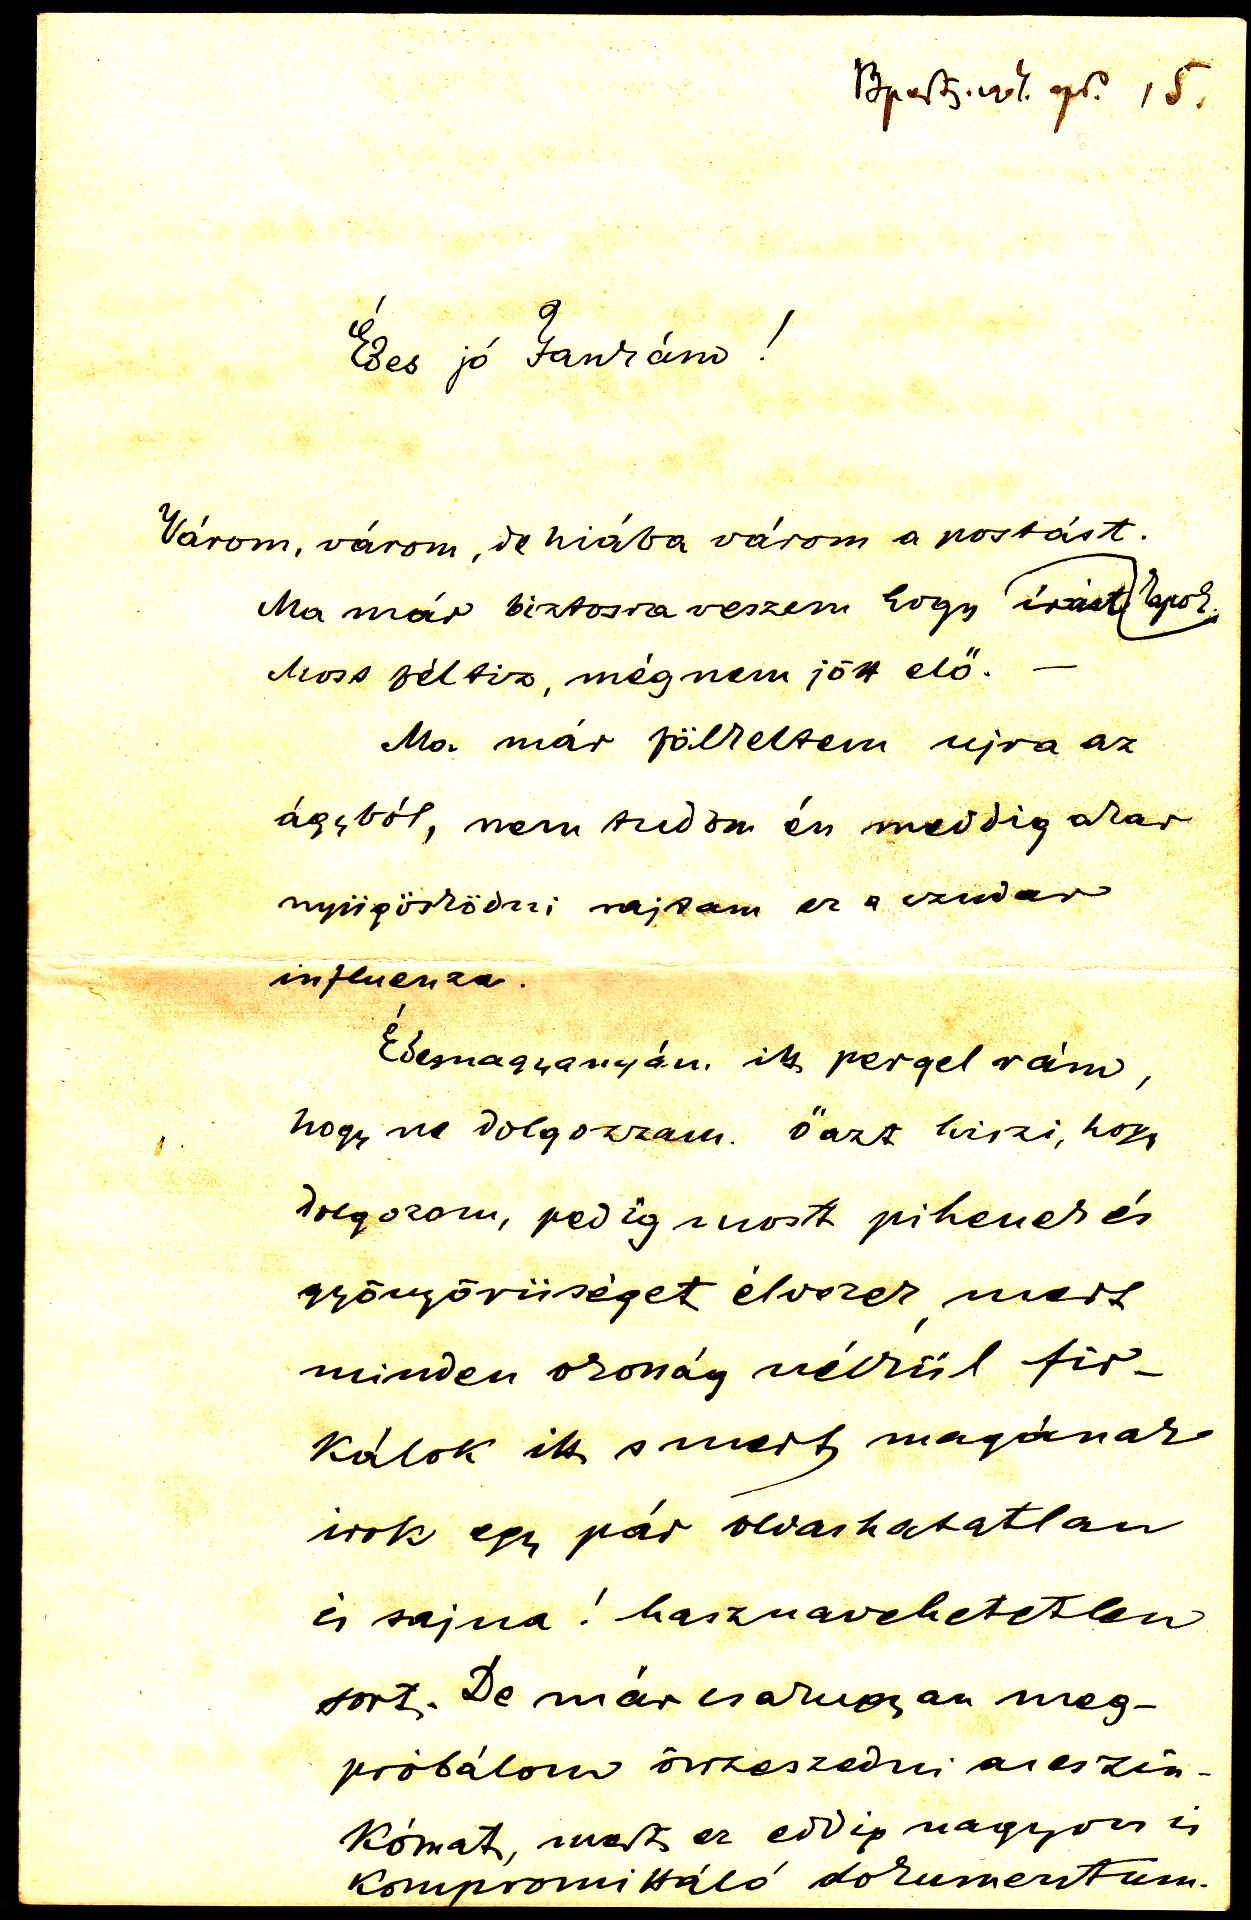 Bpest, 15.
Édes jó Jankám!
Várom, várom, de hiába várom a postást.
Ma már biztosra veszem hogy írást kapok.
Most féltiz, még nem jött elő. —
Ma már fölkeltem ujra az
ágyból, nem tudom én meddig akar
nyügösködni rajtam ez a czudar
influenza.
Édesnagyanyám itt pergel rám,
hogy ne dolgozzam. Ő azt hiszi, hogy
dolgozom, pedig most pihenek és
gyönyörüséget élvezek, mert
minden okosság nélkül fir-
kálok itt s mert magának
irok egy pár olvashatatlan
és sajna! hasznavehetetlen
sort. De már csakugyan meg-
próbálom összeszedni az eszün-
kómat, mert ez eddig nagyon is
kompromittáló dokumentum.